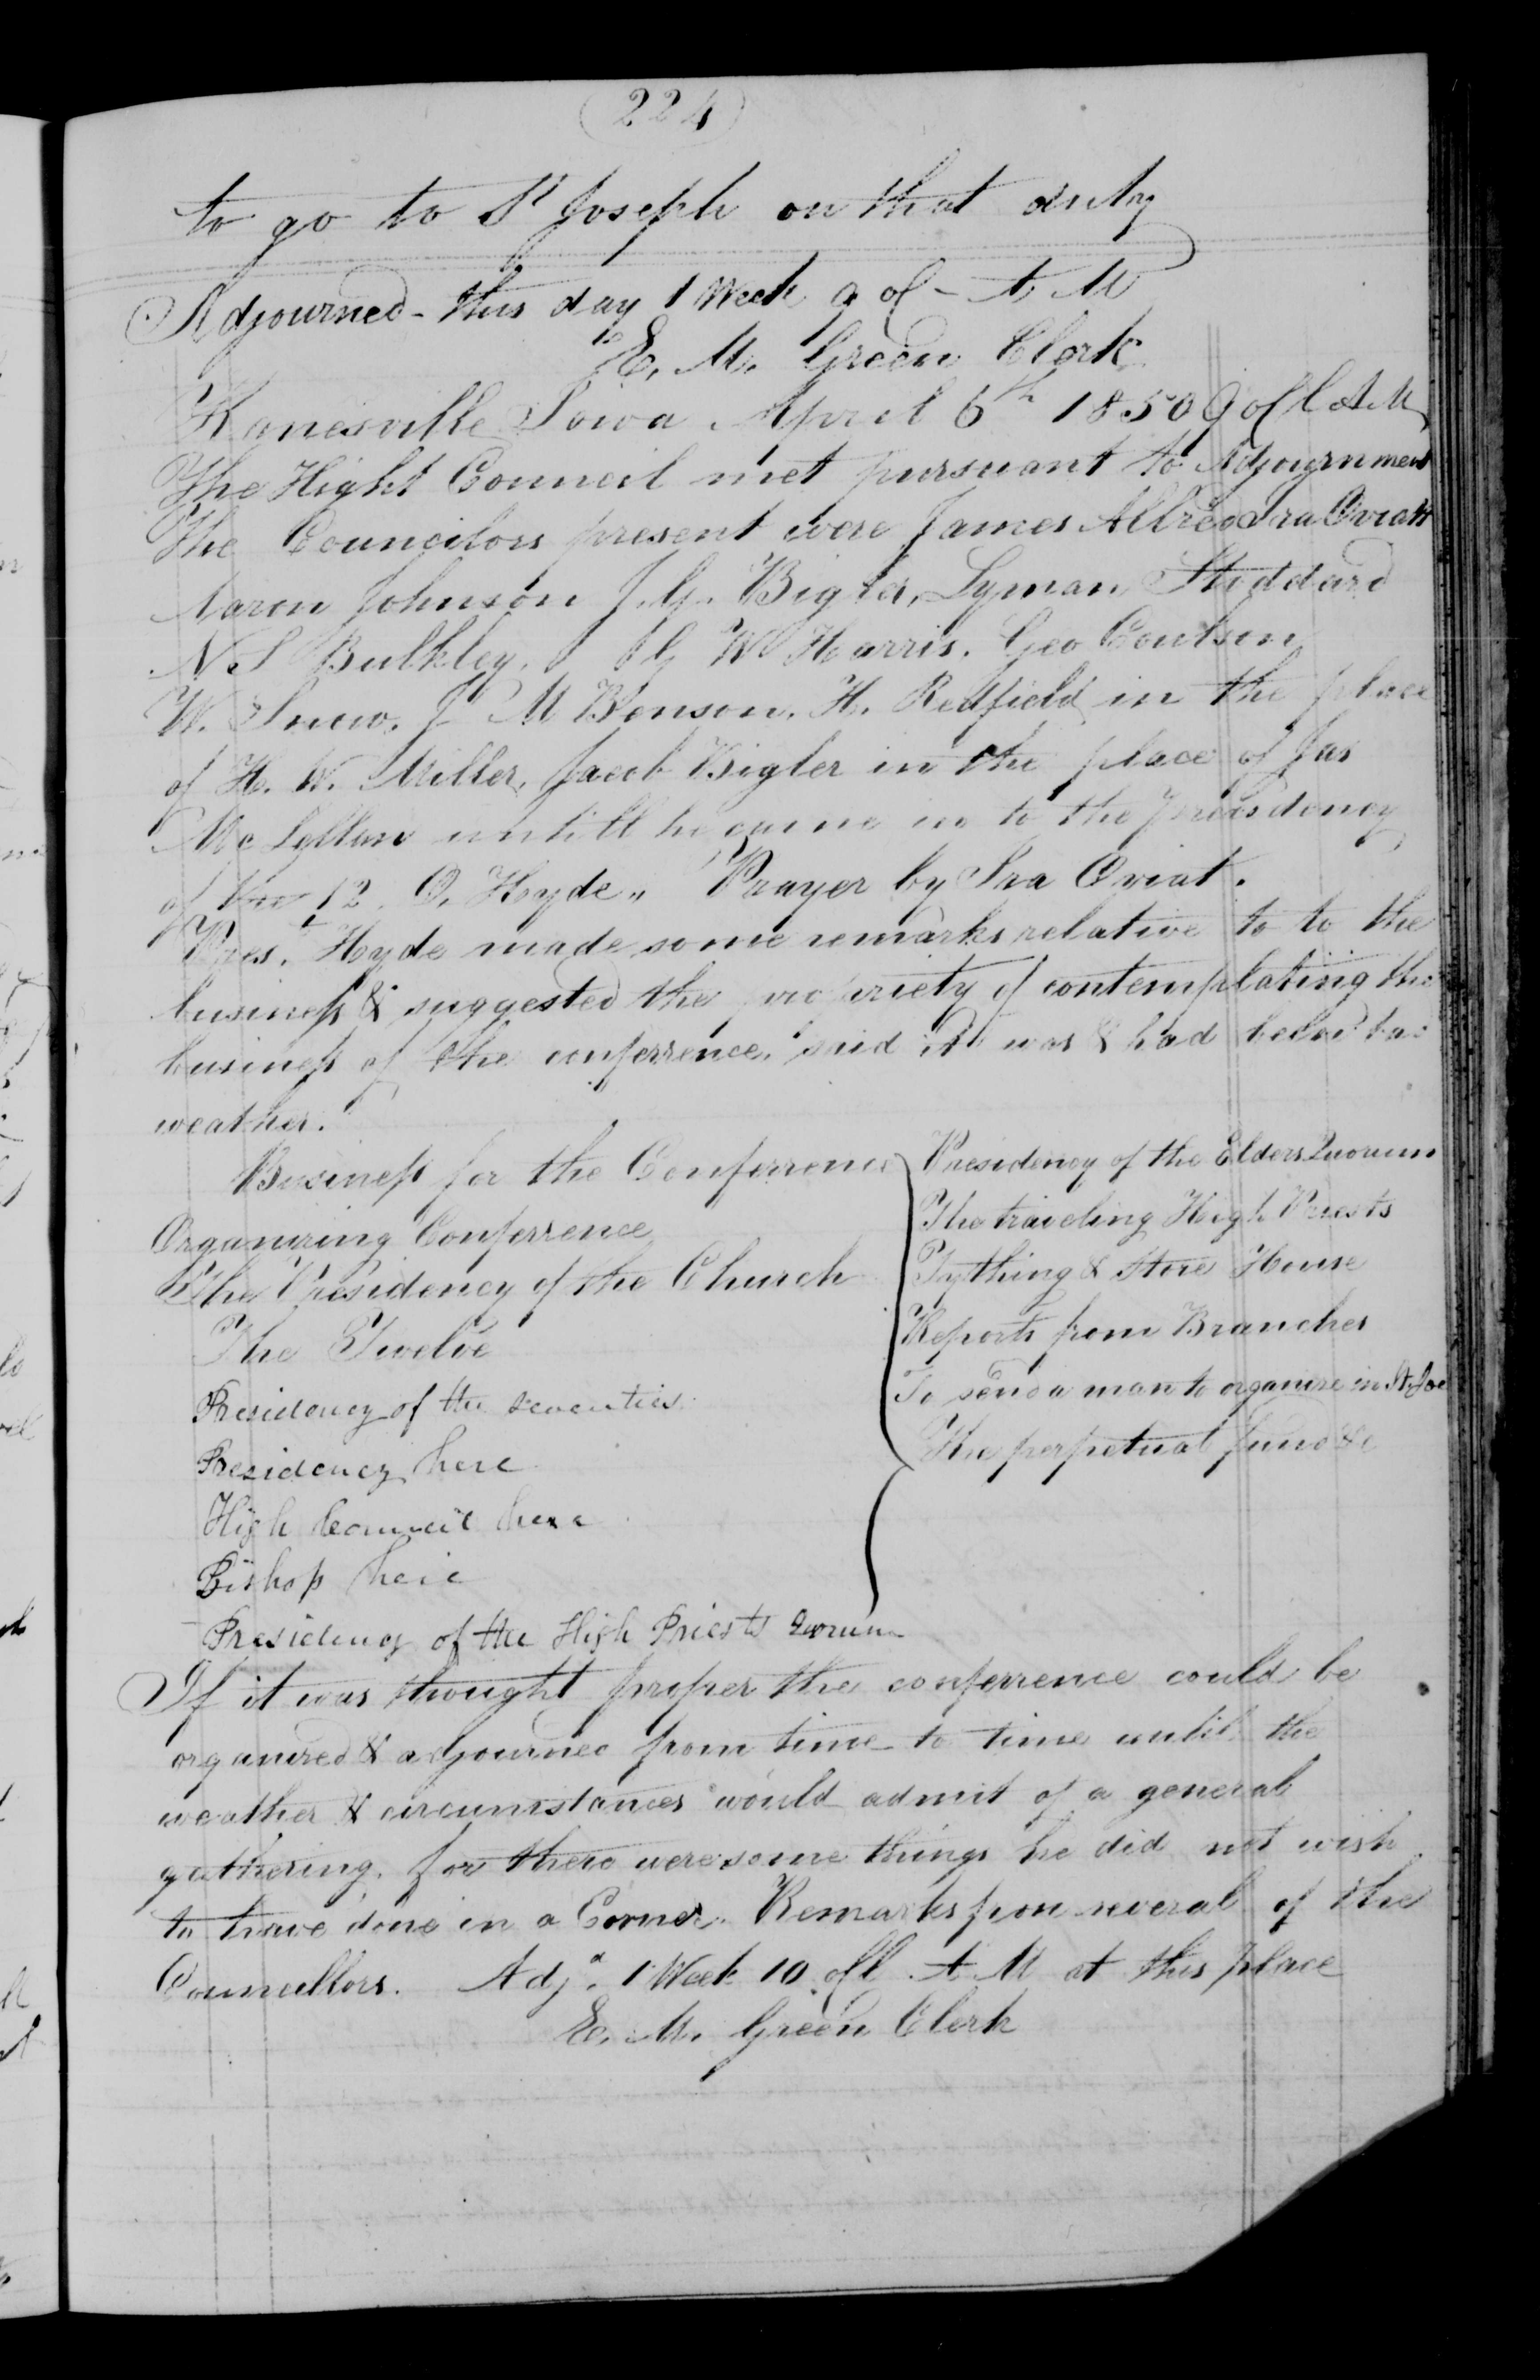 224
to go to St Joseph on that duty
Adjourned - this day 1 Week 9 ol - A M
E. M. Green Clerk
Kanesville Iowa April 6th 1850 9 ofl A M
The Hight Council met pursuant to Adjournment
The Councilors present were James Allred Ira Oviatt
Aaron Johnson J. G. Bigler, Lyman Stoddard
N S Bulkley. G W Harris. Geo Coulson
W. Snow. J M Benson. H. Redfield in the place
of H. W. Miller, Jacob Bigler in the place of Jas
Mc Lellan untill he came in to the Presidency
of 12. O. Hyde „ Prayer by Ira Oviat.
Prest. Hyde made some remarks relative to to the
business & suggested the propriety of contemplating the
business of the conferrence, said it was & had been bad
weather.
Business for the Conferrence
Organizing Conferrence
The Presidency of the Church
The Twelve
Presidency of the seventies
Presidency here
High Council here
Bishop here
Presidency of the High Priests Quorum
Presidency of the Elders Quorum
The traveling High Priests
Tything & Store House
Reports from Branches
To send a man to organize in St. Joe
The perpetual fund &c
If it was thought proper the conferrence could be
organized & adjourned from time to time until the
weather & circumstances would admit of a general
gathering. for there were some things he did not wish
to have done in a Corner. Remarks from several of the
Councellors. Adjd. 1 Week 10 ofl A M at this place
E. M. Green Clerk